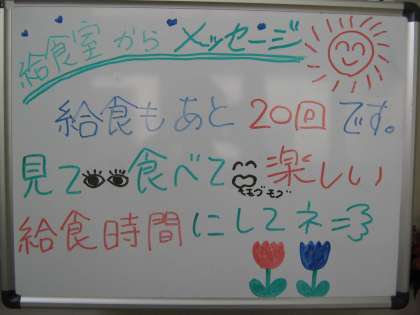 給食室からメッセージ
給食もあと20回です。
見て食べて楽しい
モグモグ
給食時間にしてネ